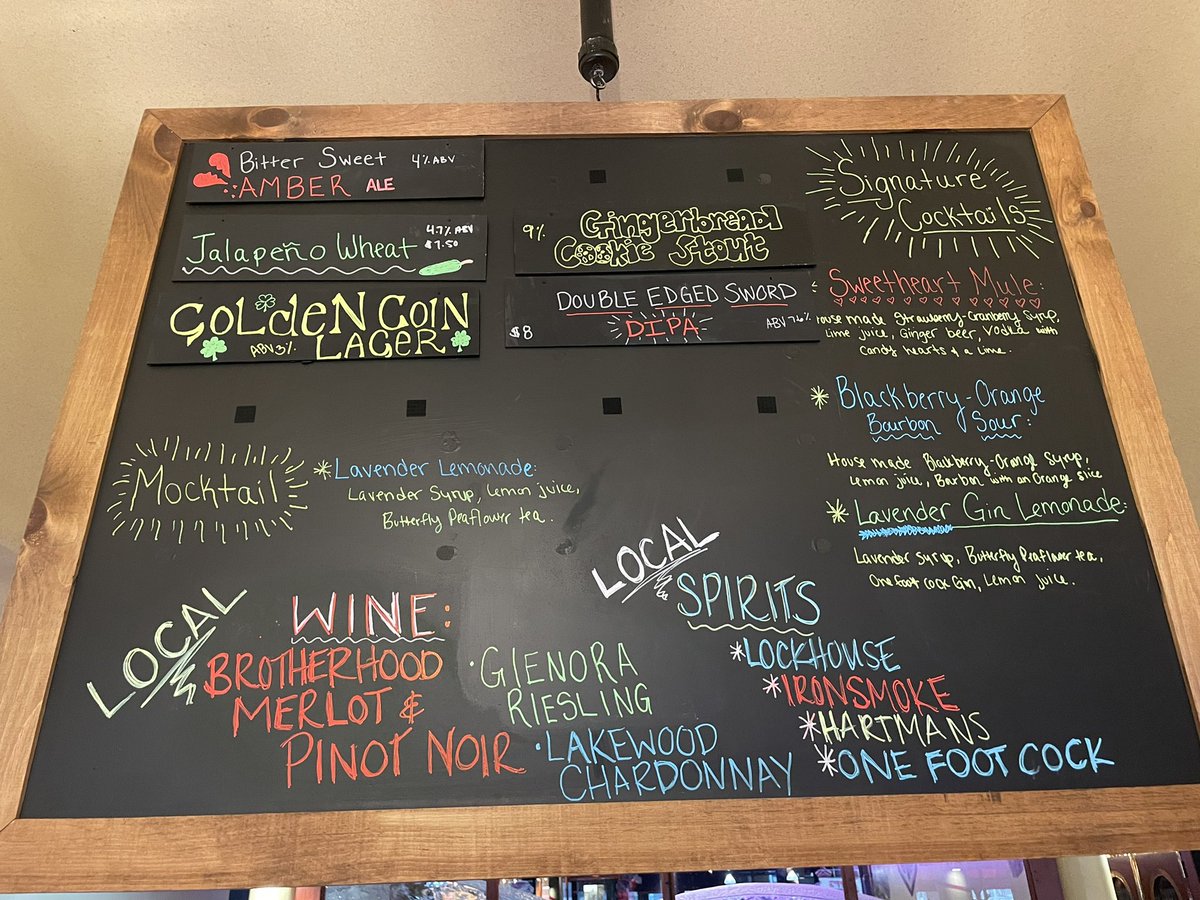 Bitter Sweet 4% ABV
AMBER ALE
Jalapeño Wheat 4.7% ABV
$7.50
GOLdeN COIN
LAGER
ABV 3%
9% Gingerbread
Cookie Stout
DOUBLE EDGED SWORD
$8 DIPA ABV 7.6%
Signature
Cocktails
Sweetheart Mule:
House made Strawberry-Cranberry Syrup,
Lime juice, Ginger beer, Vodka with
Candy hearts & a lime.
*Blackberry-Orange
Bourbon Sour:
House made Blackberry-Orange Syrup,
Lemon juice, Barbon with an Orange slice
*Lavender Gin Lemonade:
Lavender Syrup, Butterfly Peaflower tea,
One foot cock Gin, Lemon juice.
Mocktail
*Lavender Lemonade:
Lavender Syrup, Lemon juice,
Butterfly Peaflower tea.
LOCAL
WINE:
BROTHERHOOD
MERLOT &
PINOT NOIR
·GlENORA
RIESLING
·LAKEWOOD
CHARDONNAY
LOCAL
SPIRITS
*LOCKHOUSE
*IRONSMOKE
*HARTMANS
*ONE FOOT COCK